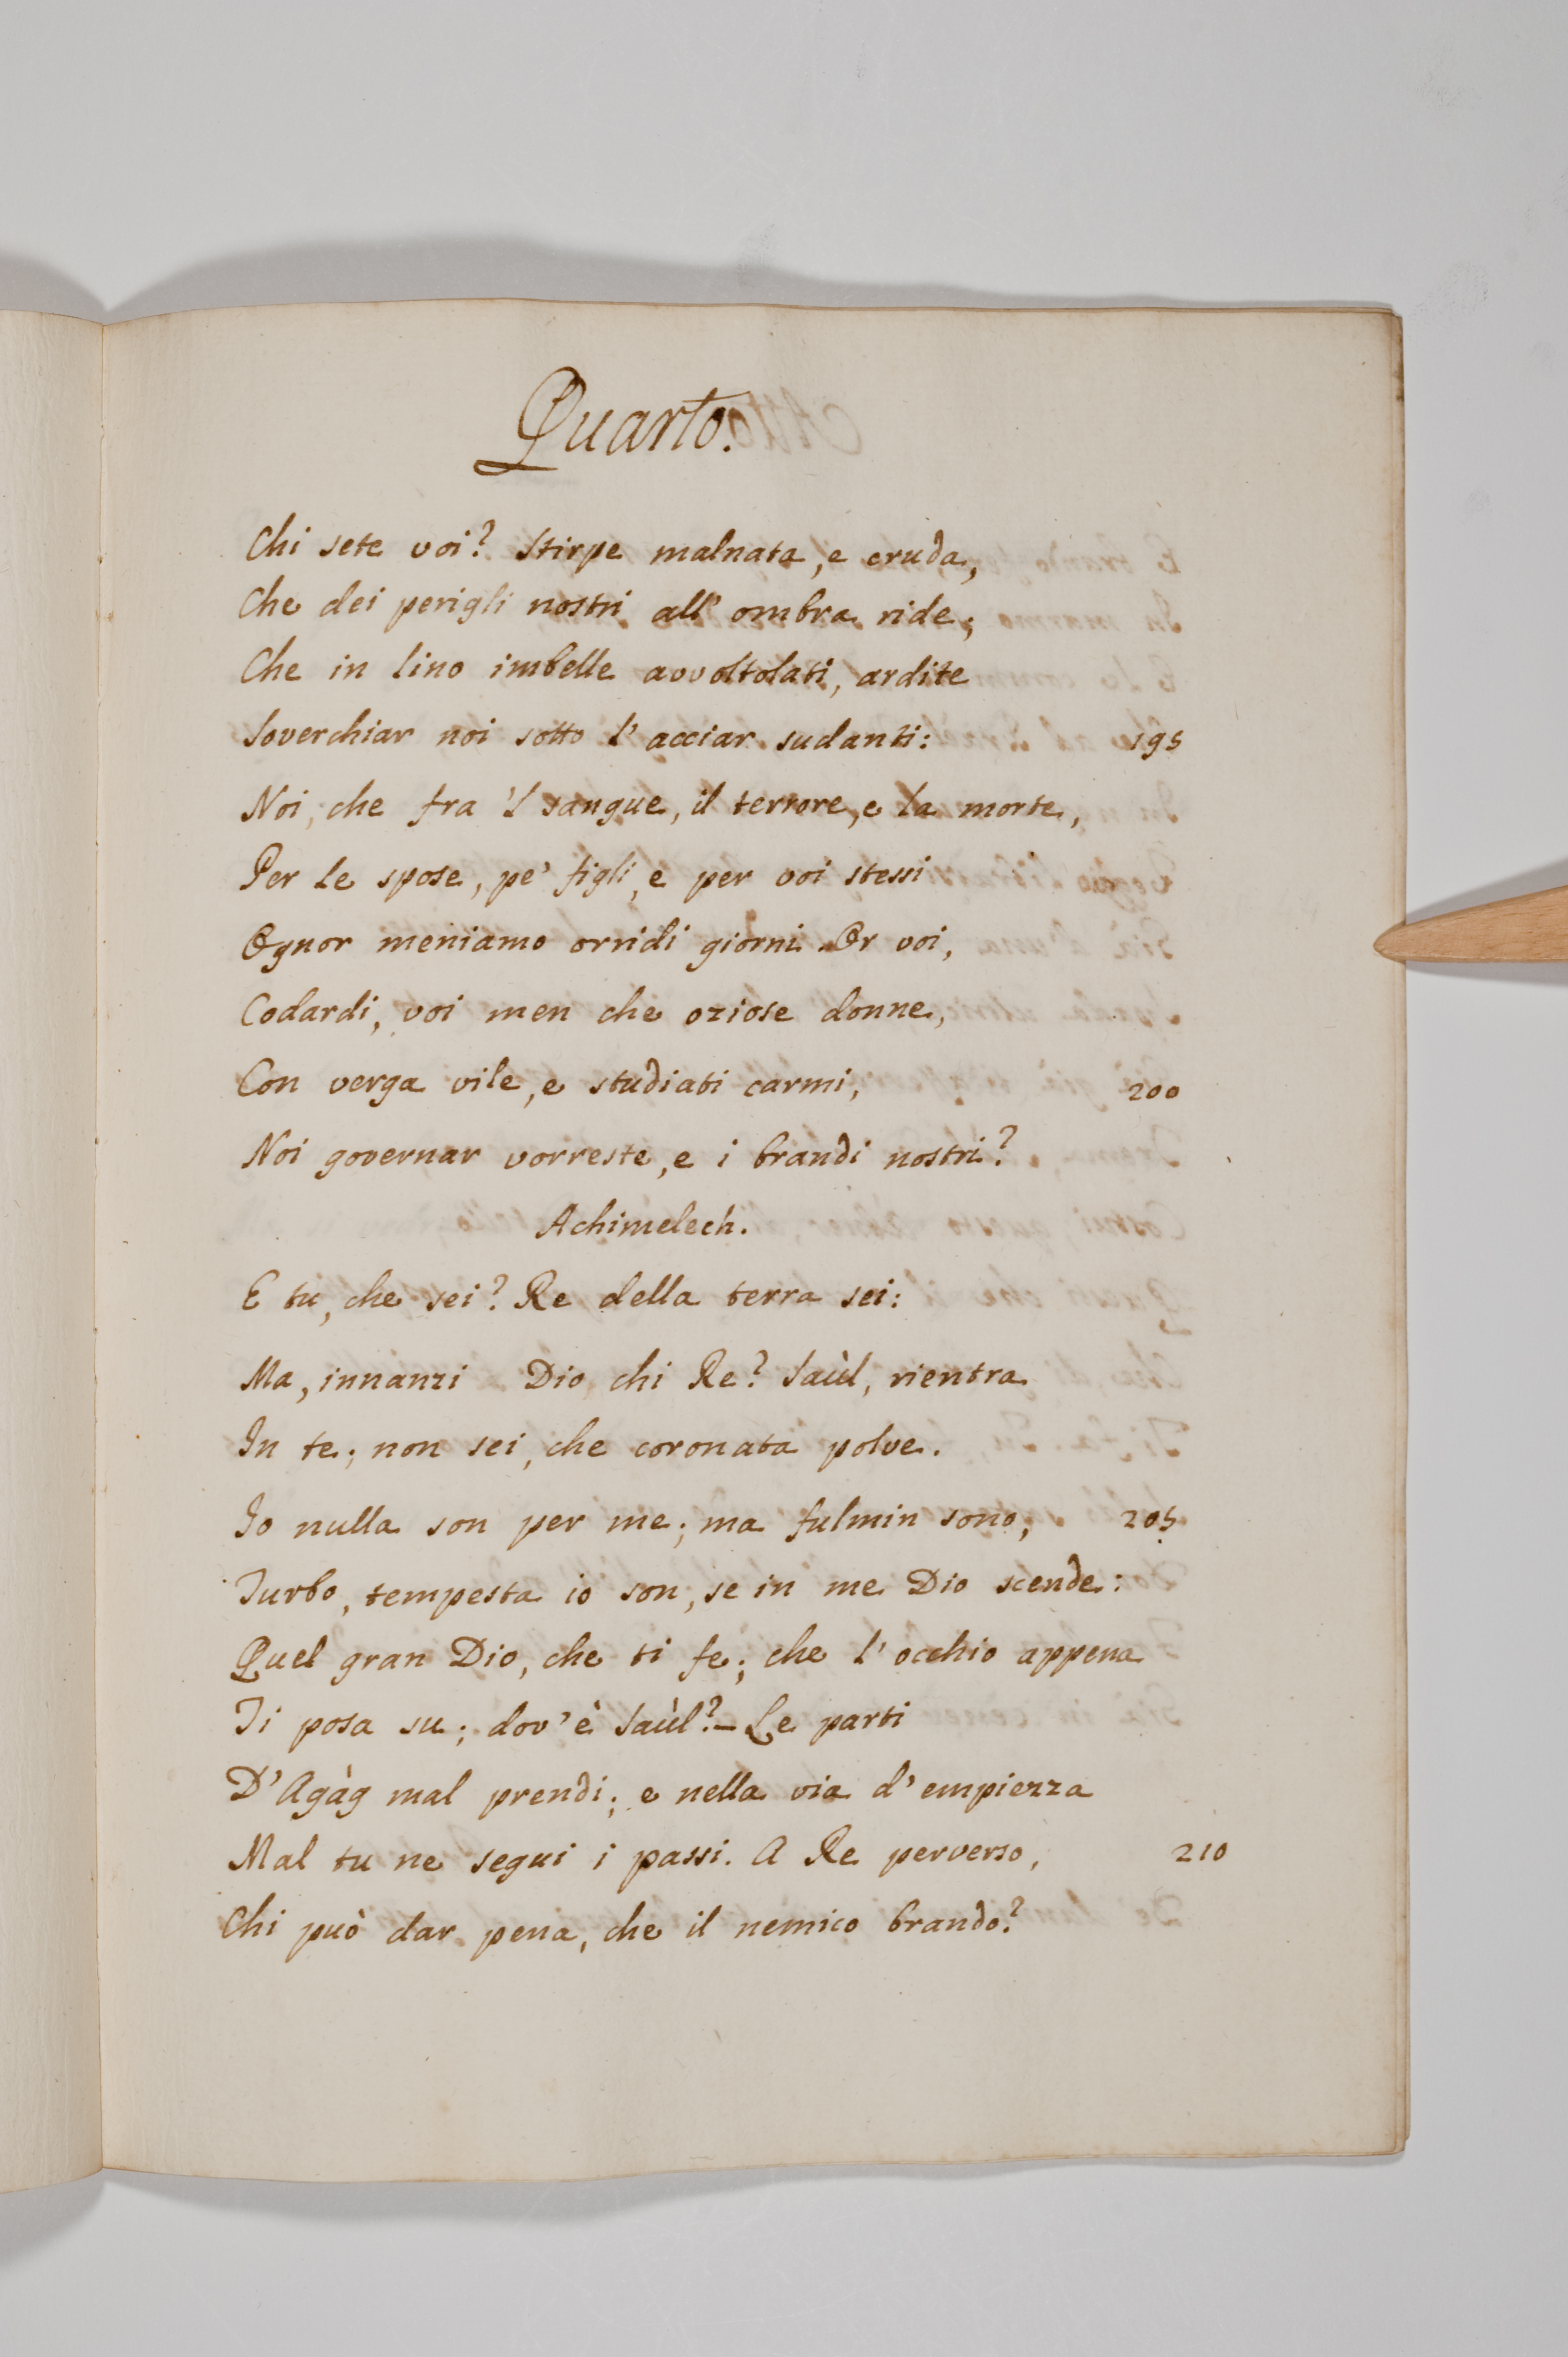 Quarto.
Chi sete voi? Stirpe malnata, e cruda,
Che dei perigli nostri all' ombra ride;
Che in lino imbelle avvoltolati, ardite
Soverchiar noi sotto l' acciar sudanti: 195
Noi, che fra 'l sangue, il terrore, e la morte,
Per le spose, pe' figli, e per voi stessi
Ognor meniamo orridi giorni. Or voi,
Codardi, voi men che oziose donne,
Con verga vile, e studiati carmi, 200
Noi governar vorreste, e i brandi nostri?
Achimelech.
E tu, che sei? Re della terra sei:
Ma, innanzi Dio, chi Re? Saùl, rientra
In te; non sei, che coronata polve.
Io nulla son per me; ma fulmin sono, 205
Turbo, tempesta io son, se in me Dio scende:
Quel gran Dio, che ti fe; che l' occhio appena
Ti posa su; dov' è Saùl? – Le parti
D' Agàg mal prendi; e nella via d' empiezza
Mal tu ne segui i passi. A Re perverso, 210
Chi può dar pena, che il nemico brando?